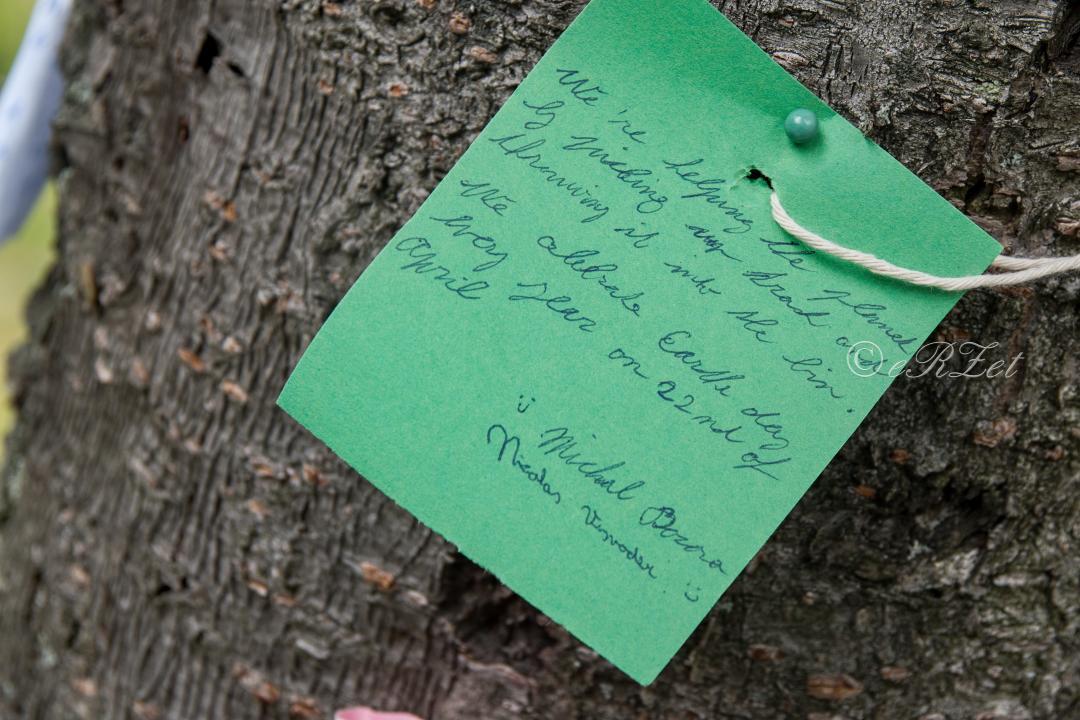 We're helping the planet
by picking up trash and
throwing it into the bin.
We celebrate Earth day
every year on 22nd of
April
Michal Bozora
Nicolas
©eRZet